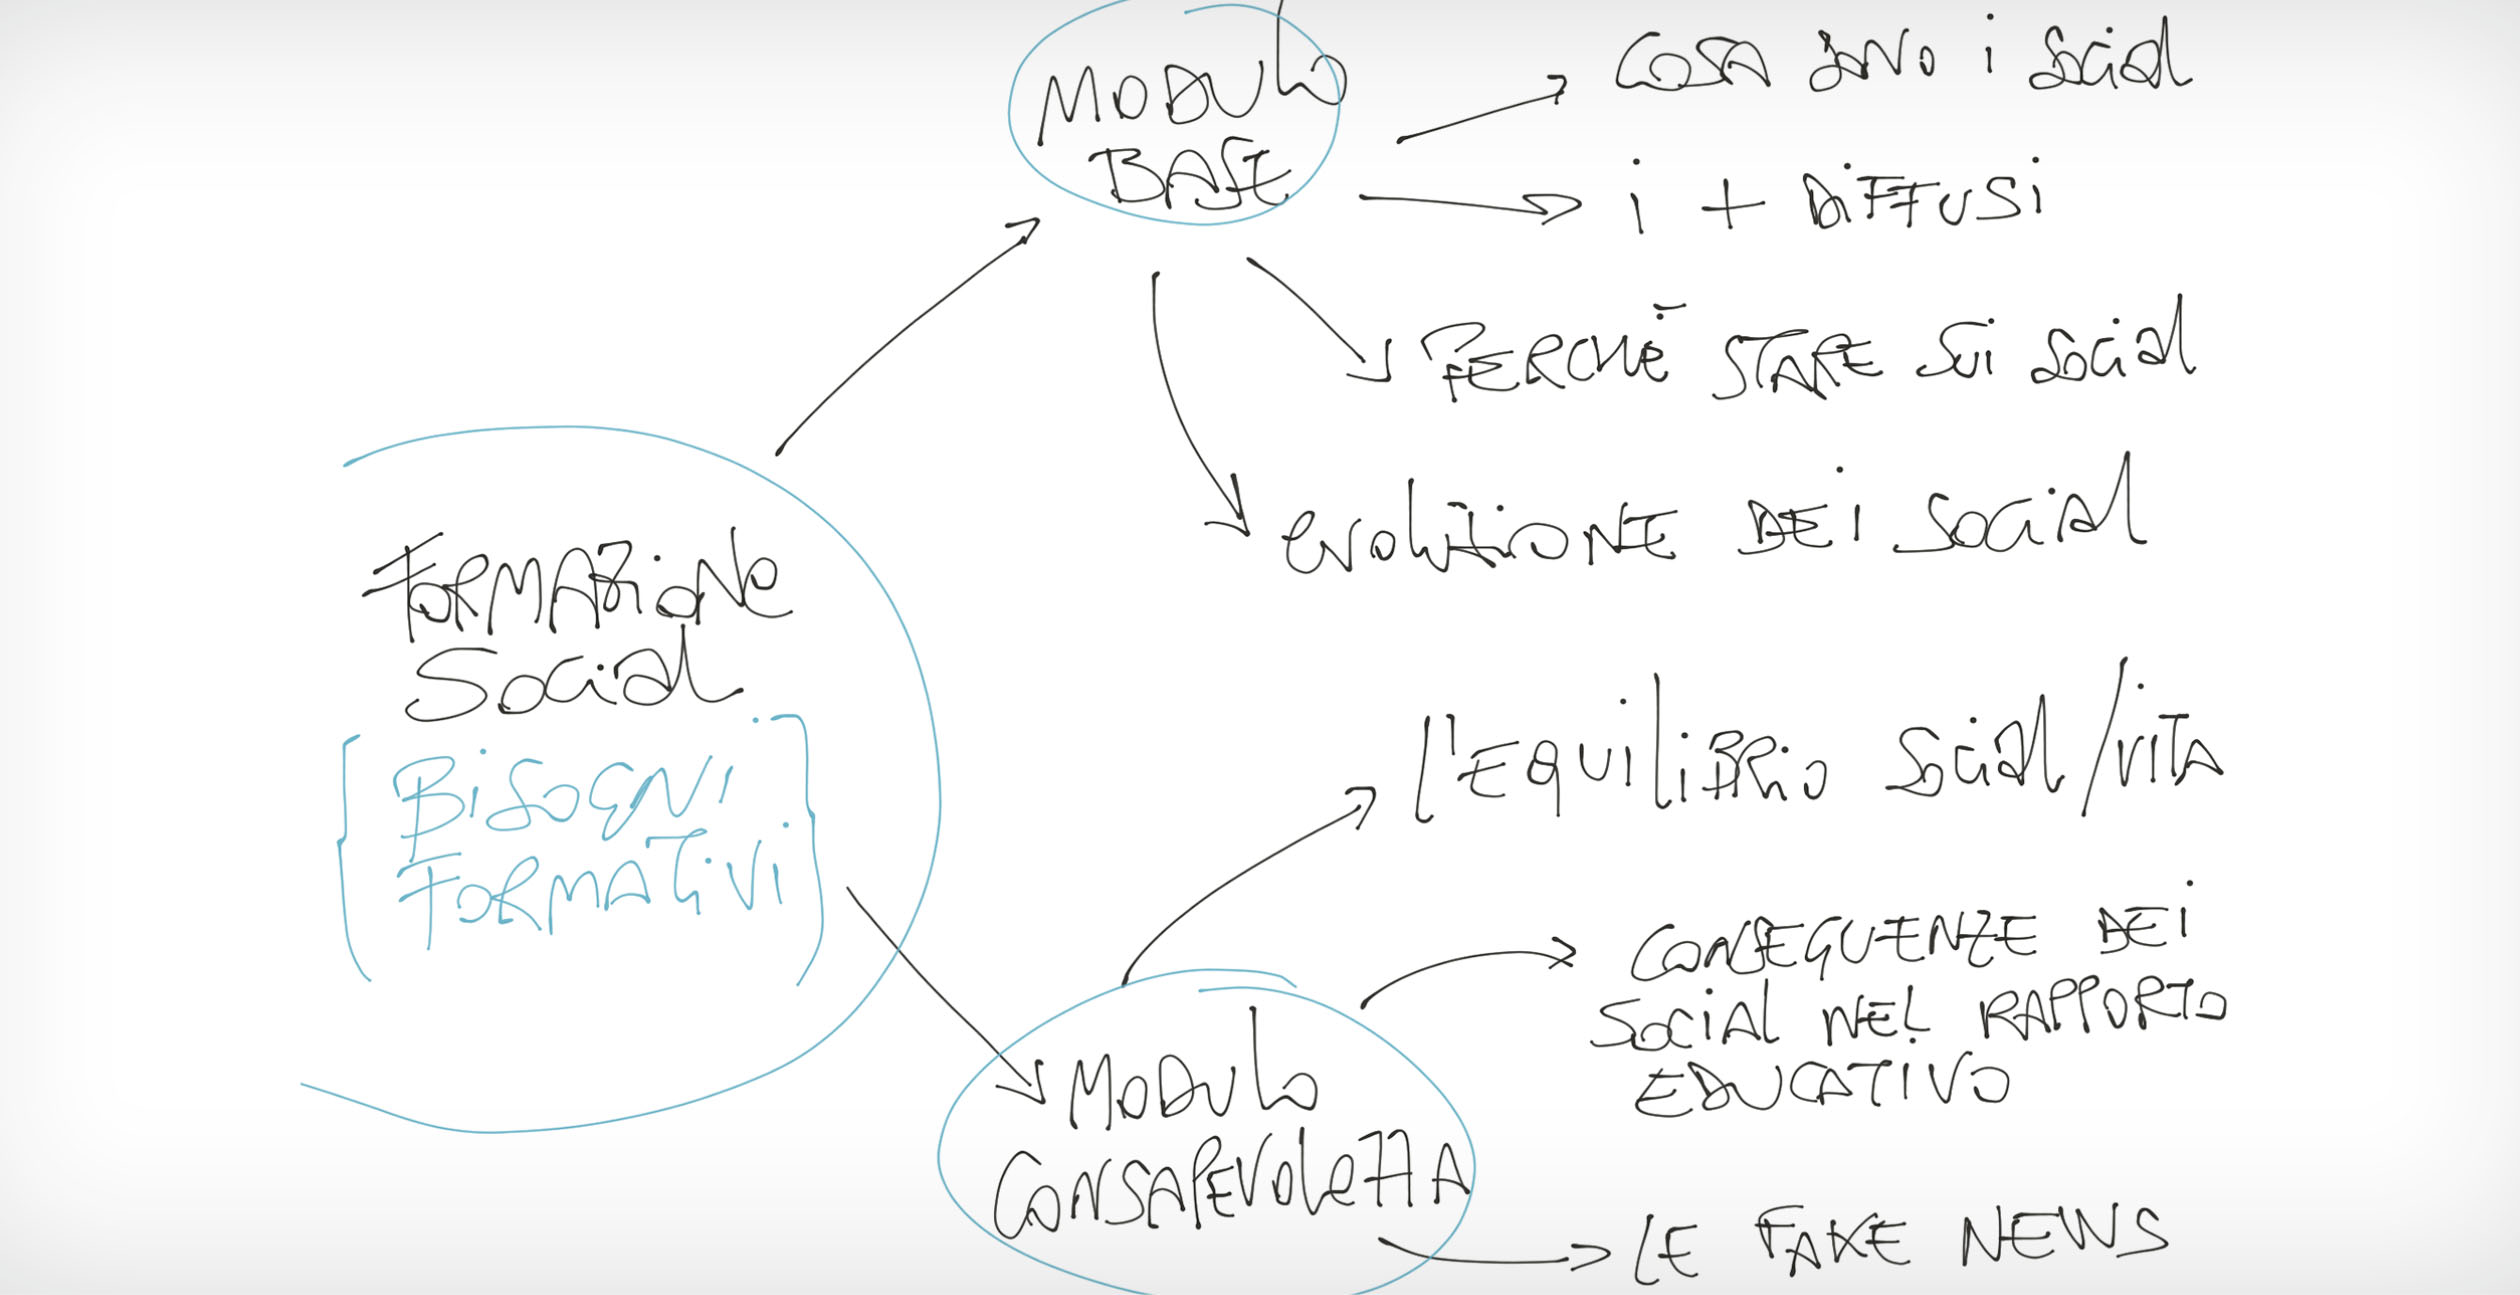 MODULO
BASE
COSA SONO i Social
i + DiFFUSi
PERCHÉ STARE Sui Social
evoluzioNE DEi Social
FORMAZioNe
Social
BiSOGNi
FORMATiVi
l'EquiliBRio Social/viTA
CONSEGUENZE DEi
SOCiAL NEL RAPPORTO
EDUCATIVO
MODULO
CONSAPEVOLeZZA
LE FAKE NEWS